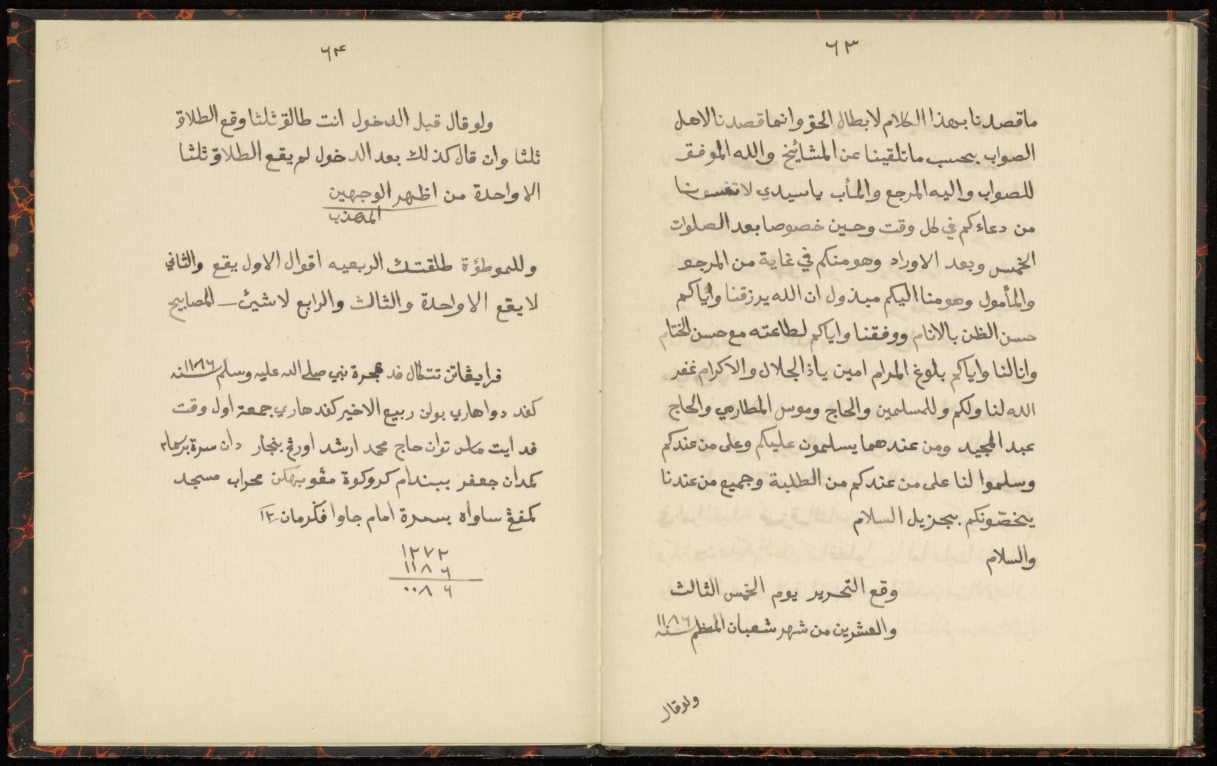 ٦٣
ماقصدنا بهذا الكلام لابطال الحق وانما قصدنا الاهل
الصواب بحسب ماتلقينا عن المشائخ والله الموفق
للصواب واليه المرجع والمأب ياسيدي لا
من دعاءكم في كل وقت وحين خصوصا بعد الصلوات
الخمس وبعد الاوراد وهو منكم في غاية من المرجو
والمأمول وهو منا اليكم مبذول ان الله يرزقنا واياكم
حسن الظن بالانام ووفقنا واياكم لطاعته مع حسن الختام
وانالنا واياكم بلوغ المرام امين ياذالجلال والاكرام غفر
الله لنا ولكم وللمسلمين والحاج وموس المطارحي والحاج
عبد المجيد ومن عندهما يسلمون عليكم وعلى من عندكم
وسلموا لنا على من عندكم من الطلبة وجميع من عندنا
يخصّونكم بجزيل السلام
والسلام
وقع التحرير يوم الخمس الثالث
والعشرين من شهر شعبان المعظم سنه ١١٨٦
ولوقال
٦٤
ولوقال قبل الدخول انت طالق ثلثا وقع الطلاق
ثلثا وان قال كذلك بعد الدخول لم يقع الطلاق ثلثا
الا واحدة من اظهر الوجهين
المهذب
وللموطؤة طلقتك الربعيه اقوال الاول يقع والثاني
لا يقع الا واحدة والثالث والرابع لاشيئ المصابيح
فد هجرة نبي صلى الله عليه وسلم سنه ١١٨٦
كفد دواهاري بولن ربيع الاخير كفد هاري جمعة اول وقت
فد ايت توان حاج محمد ارشد اورڠ بنجار دان سرة
كمدان جعفر محراب مسجد
كمفڠ ساواه بسرة امام جاوا فكرمان ١٢
١٢٧٢
١١٨٦
٠٠٨٦
33